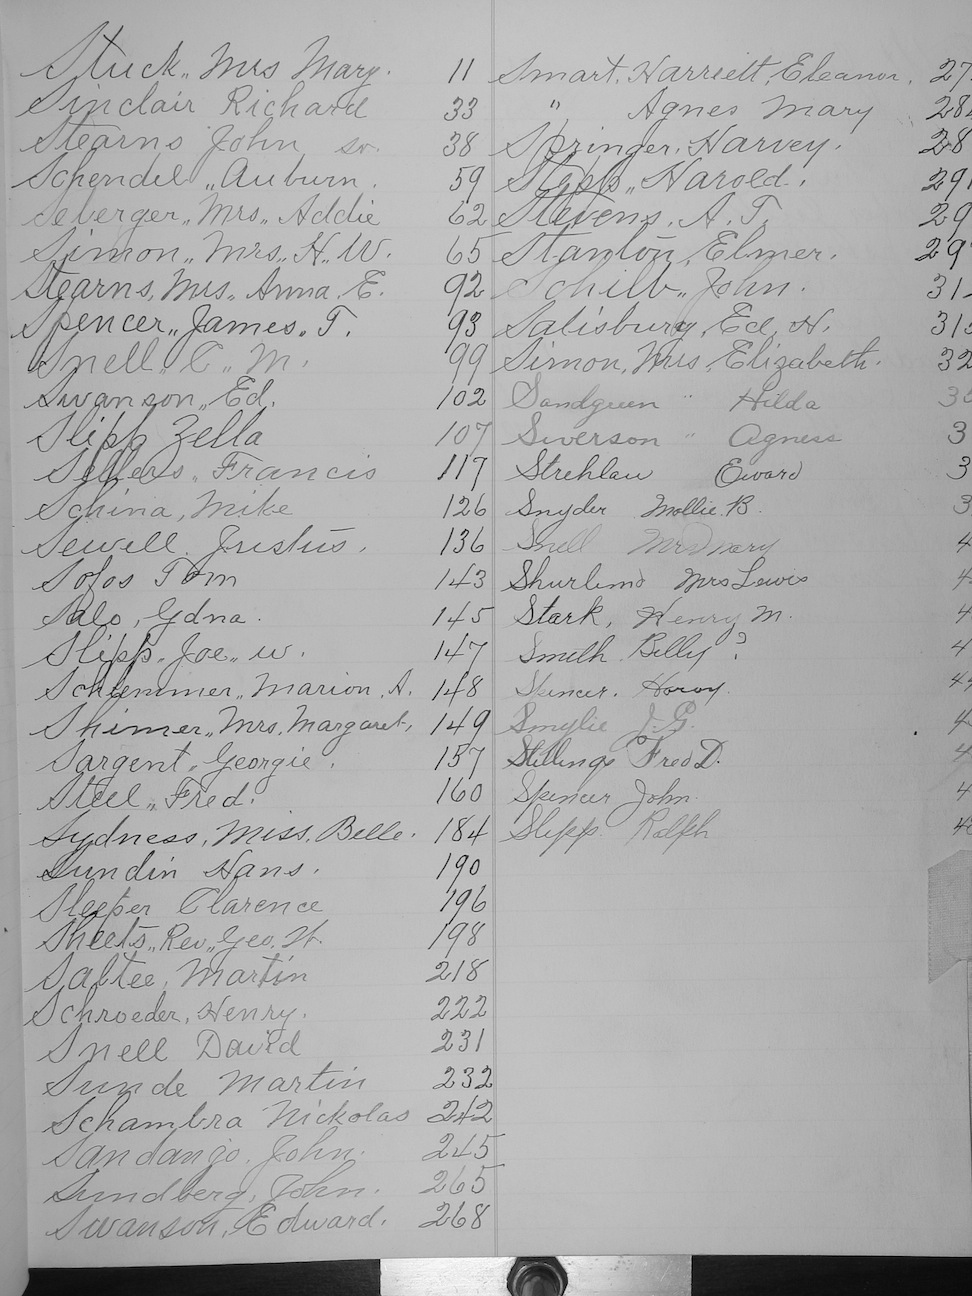 Stuck, Mrs Mary. 11
Sinclair Richard 33
Stearns John sr. 38
Schendel, Auburn. 59
Seberger, Mrs, Addie 62
Simon, Mrs, H, W. 65
Stearns, Mrs, Anna, E. 92
Spencer, James, T. 93
Snell, C, M. 99
Swanson, Ed. 102
Slipp Zella 107
Sellers, Francis 117
Schina, Mike 126
Sewell, Justus. 136
Sofos Tom 143
Salo, Edna. 145
Slipp, Joe, W. 147
Schlemmer, Marion, A. 148
Shimer, Mrs, Margaret, 149
Sargent, Georgie. 157
Steel, Fred. 160
Sydness, Miss, Belle. 184
Sundin Hans. 190
Sleeper Clarence 196
Sheets, Rev, Geo. H. 198
Saltee, Martin 218
Schroeder, Henry. 222
Snell David 231
Sunde Martin 232
Schambra Nickolas 242
Sandango, John. 245
Sundberg, John. 265
Swanson, Edward. 268
Smart, Harriett, Eleanor, 27
" Agnes Mary 28
Springer, Harvey. 28
Slipp, Harold. 29
Stevens, A. T. 29
Stanton, Elmer. 29
Schilb, John. 31
Salisbury, Ed, H. 31
Simon, Mrs, Elizabeth. 32
Sandgreen " Hilda 3
Siverson " Agness 3
Strehlau Eward 3
Snyder Mollie. B. 3
Snell Mrs Mary 4
Mrs Lewis 4
Stark, Henry M. 4
Smith Billy ? 4
Spencer. Harvy. 4
Smylie J. G. 4
Stillings Fred D. 4
Spencer John. 4
Slipp. Ralph 4